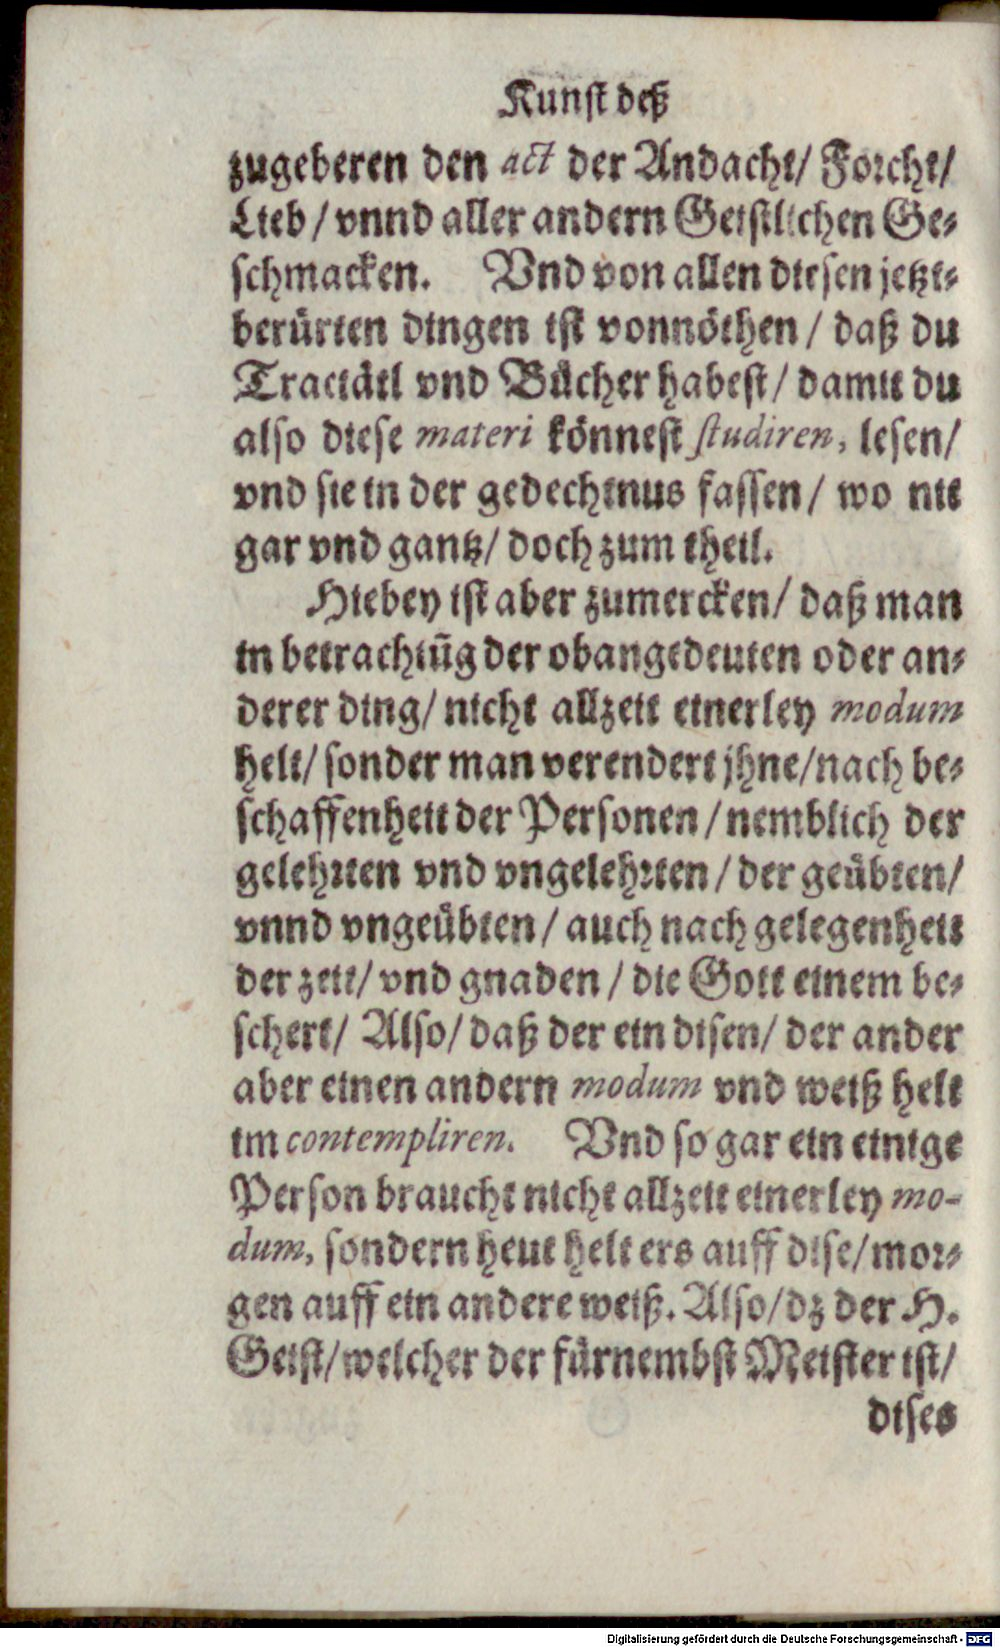 Kunst deß
zugeberen den act der Andacht/ Forcht/
Lieb / vnnd aller andern Geistlichen Ge-
schmacken. Vnd von allen diesen jetzt-
berürten dingen ist vonnöthen / daß du
Tractätl vnd Bücher habest / damit du
also diese materi könnest studiren, lesen/
vnd sie in der gedechtnus fassen / wo nit
gar vnd gantz/ doch zum theil.
Hiebey ist aber zumercken/ daß man
in betrachtūg der obangedeuten oder an-
derer ding/ nicht allzeit einerley modum
helt/ sonder man verendert jhne/nach be-
schaffenheit der Personen / nemblich der
gelehrten vnd vngelehrten / der geübten/
vnnd vngeübten / auch nach gelegenheit
der zeit/ vnd gnaden / die Gott einem be-
schert/ Also/ daß der ein disen/ der ander
aber einen andern modum vnd weiß helt
im contempliren. Vnd so gar ein einige
Person braucht nicht allzeit einerley mo-
dum, sondern heut helt ers auff dise/ mor-
gen auff ein andere weiß. Also/ dz der H.
Geist/ welcher der fürnembst Meister ist/
dises
Digitalisierung gefördert durch die Deutsche Forschungsgemeinschaft - DFG